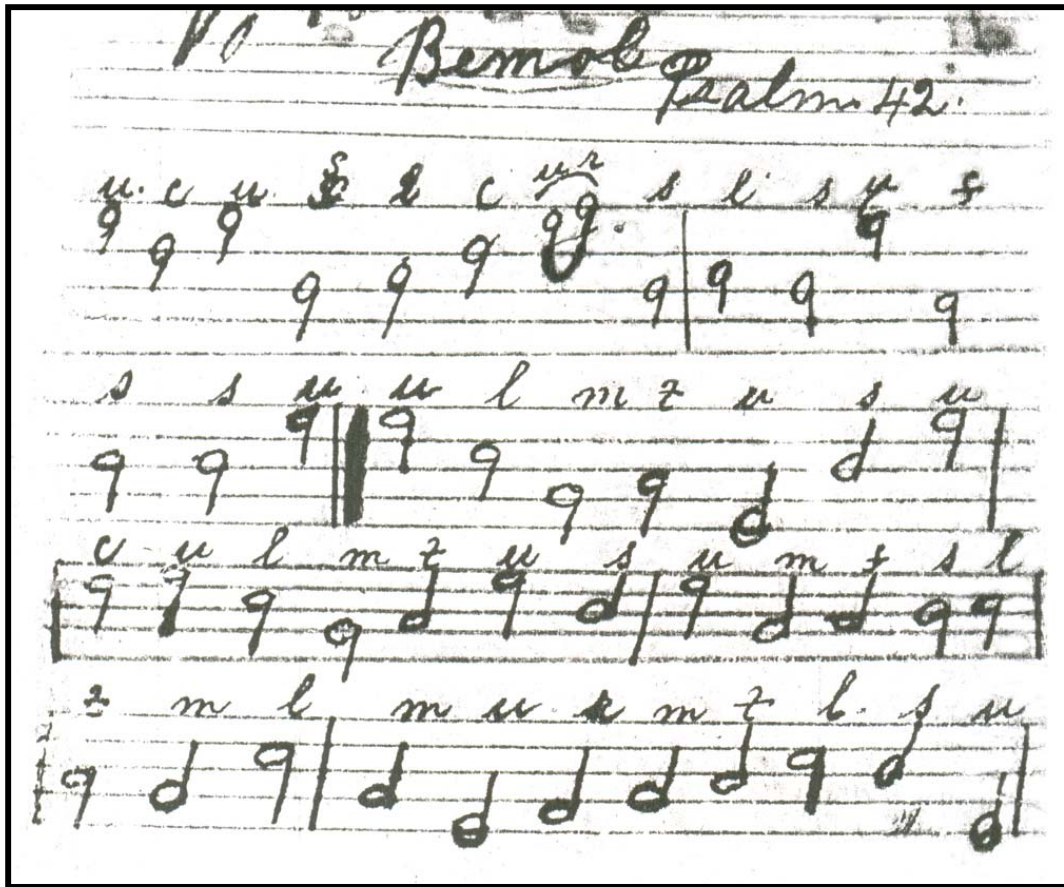 Bemol
Psalm. 42.
u. c u s l c u r s l s u f
s s u u l m f u s u
c u l m f u s u m f s l
f m l m u r m f l. s u